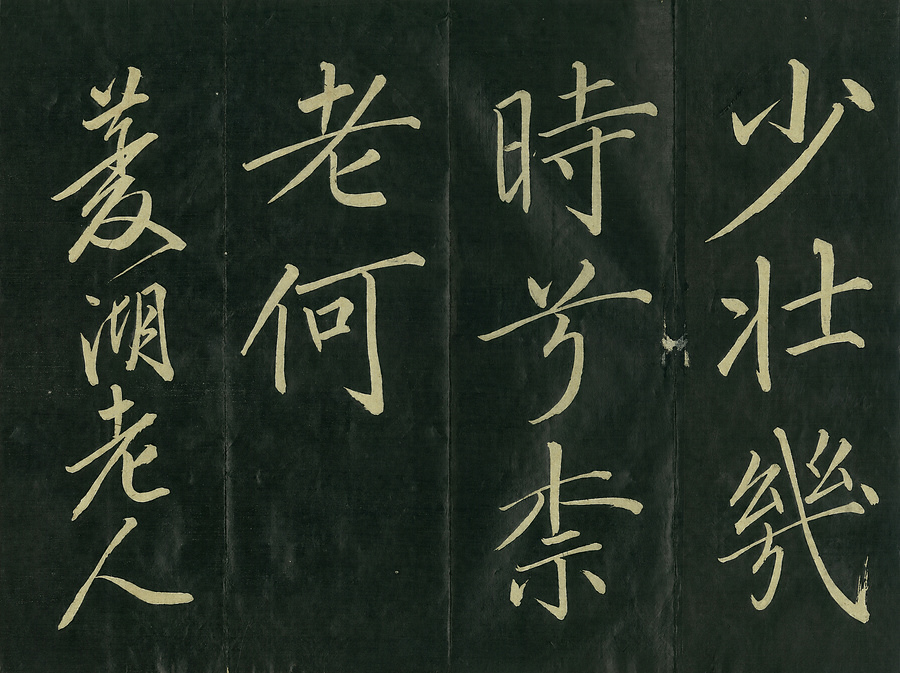 少壯幾
時兮柰
老何
菱湖老人